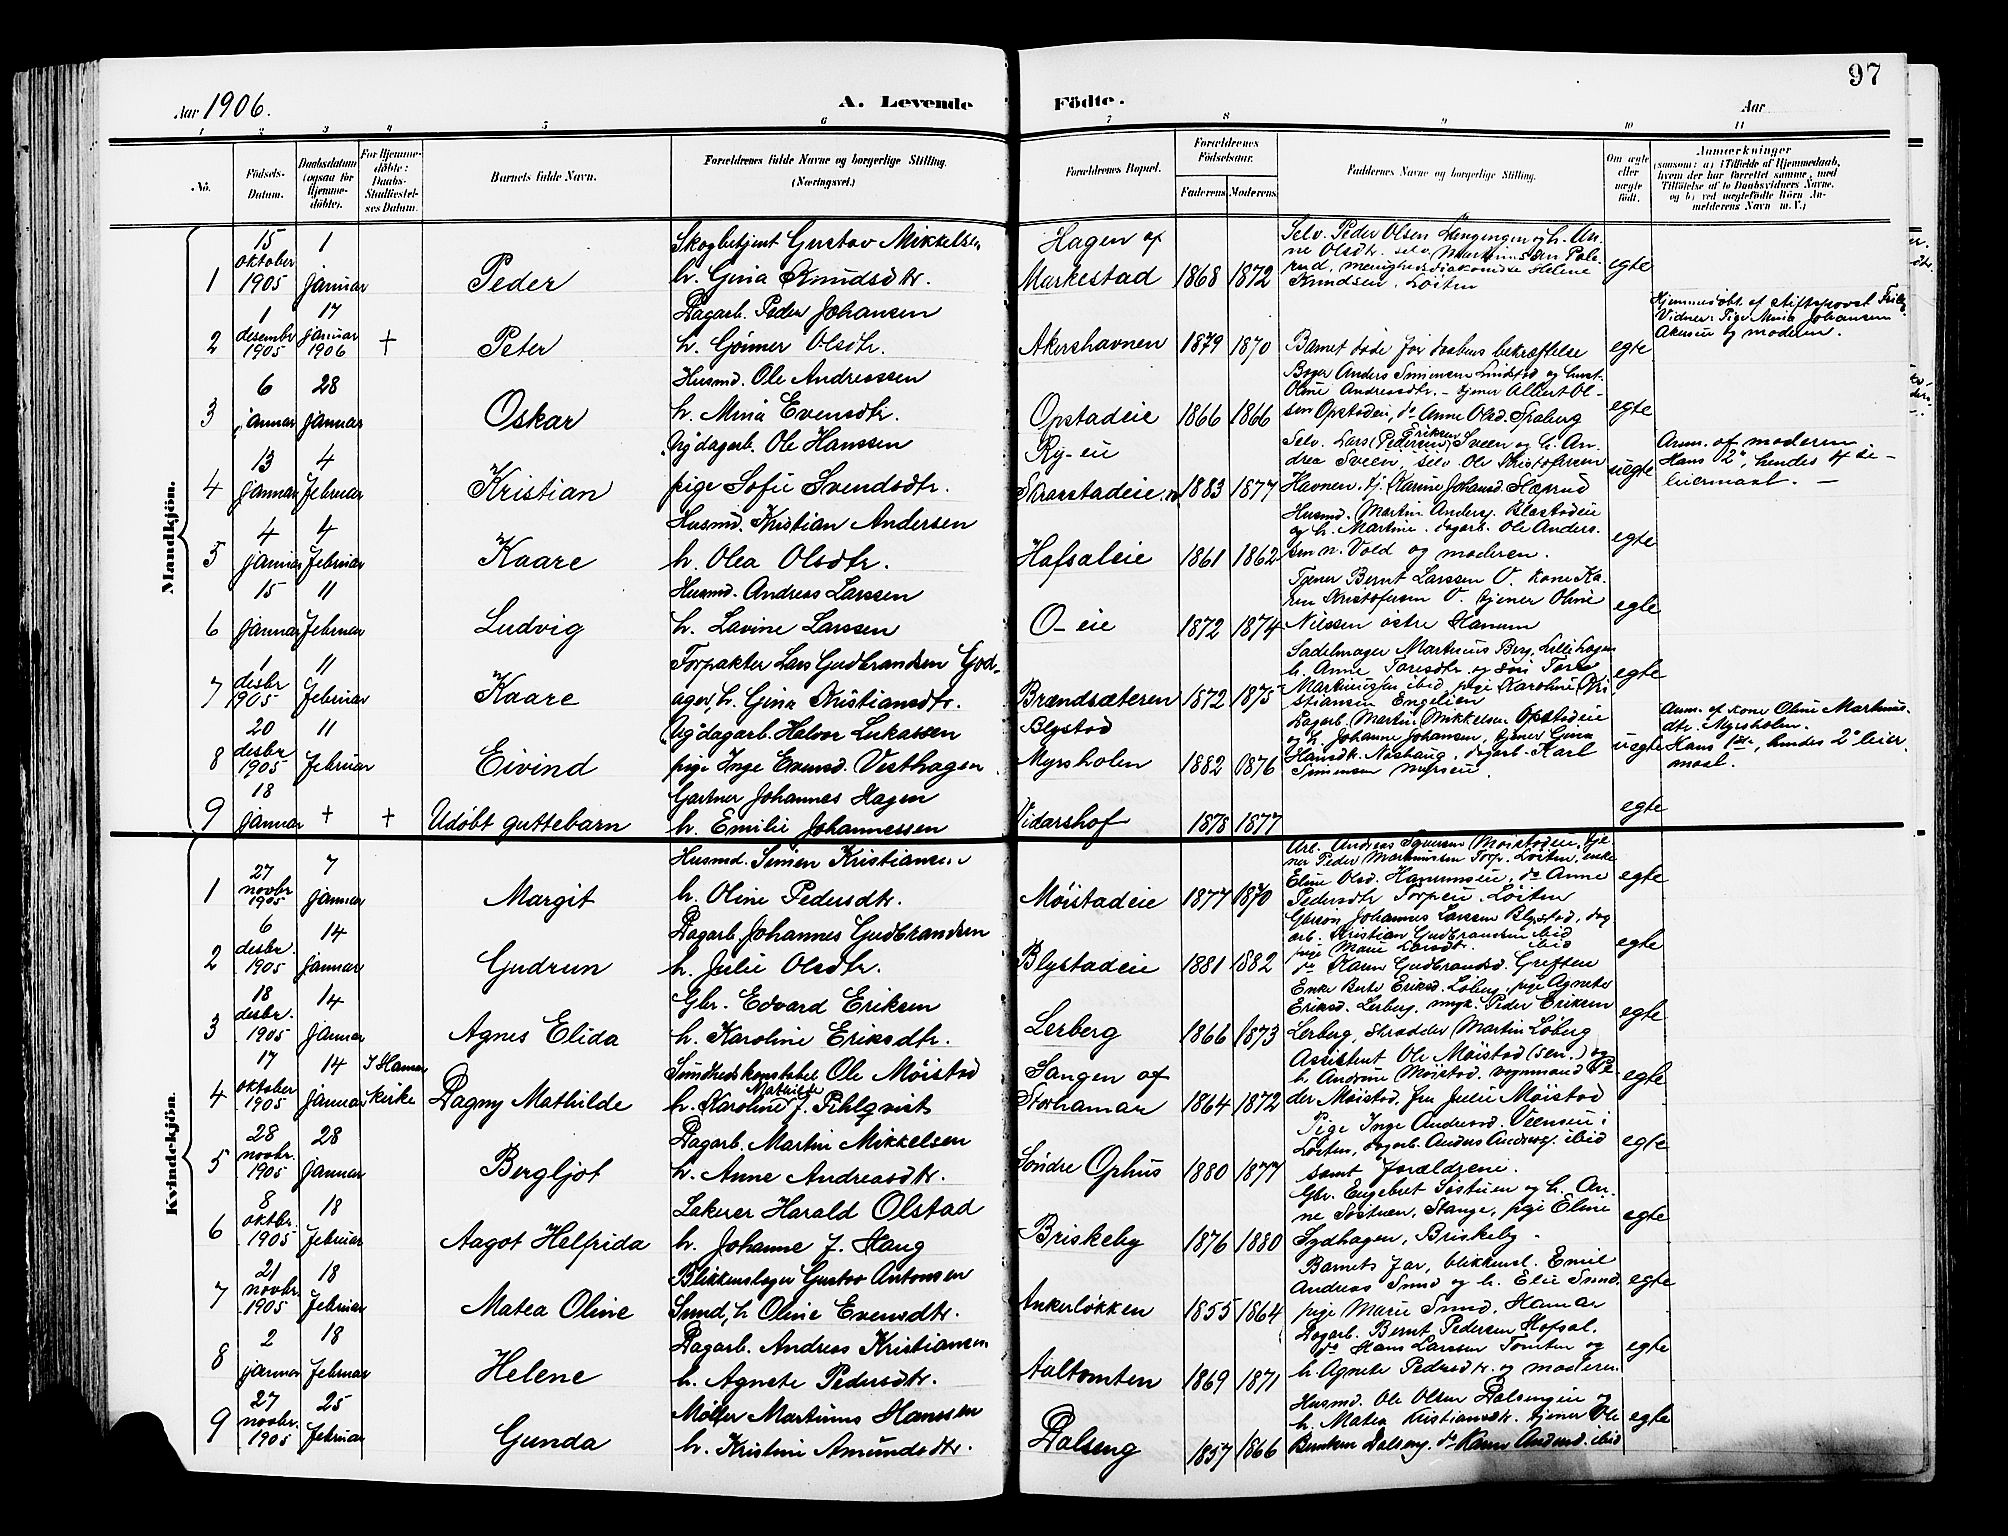 97
Aar 1906.
A. Levende Födte.
Aar
1 2 3 4 5 6 7 8 9 10 11
No.
Födsels-
Datum.
Daabsdatum
(ogsaa for
Hjemme-
döbte).
For Hjemme-
döbte:
Daabs-
Stadfæstel-
ses Datum.
Barnets fulde Navn.
Forældrenes fulde Navne og borgerlige Stilling.
(Næringsvei.)
Forældrenes Bopæl.
Forældrenes
Födselsaar.
Faderens Moderens
Faddernes Navne og borgerlige Stilling.
Om ægte
eller
uægte
født.
Anmærkninger
(saasom: a) i Tilfælde af Hjemmedaab,
hvem der har forrettet samme, med
Tilföielse af to Daabsvidners Navne,
og b) ved uægtefödte Börn An-
melderens Navn m. V.)
Mandkjön.
1
15
oktober
1905
1
januar
Peder
Skogbetjent Gustav Mikkelsen
h. Gina Knudsdtr.
Hagen af
Markestad
1868 1872
Selv. Peder Olsen Lungengen og h. An-
ne Olsdtr. selv. Martinus
menighedsdiakonisse Helene
Knudsen. Løiten
egte
2
1
desembr
1905
17
januar
1906
+
Peter
Dagarb. Peder Johansen
h. Gønner Olsdtr.
Akershavnen
1879 1870
Barnet døde før daabens bekræftelse
egte
Hjemmedøbt. af stiftsprovst
Vidner: Pige Mina Johansen
Akerseie og moderen.
3
6
januar
28
januar
Oskar
Husmd. Ole Andreassen
h. Mina Evensdtr.
Opstadeie
1866 1866
Anders Simensen og hust.
Oline Andreasdtr. - tjener Albert Ol-
sen Opstadeie, do Anne Olsd. Spaberg
egte
4
13
januar
4
Februar
Kristian
Ug. dagarb. Ole Hanssen
pige Sofie Svendsdtr.
Ry-eie
Skraastadeie, n
1883 1877
Selv. Lars (Pedersen) Eriksen Sveen og h. An-
drea Sveen. selv. Ole Kristofersen
Havnen. tj. Karine Johansd. Slæpsrud
uegte
Anm. af moderen
Hans 2', hendes 4' le-
iermaal. -
5
4
januar
4
Februar
Kaare
Husmd. Kristian Andersen
h. Olea Olsdtr.
Hafsaleie
1861 1862
Husmd. Martin Anders. Blæstadeie
og h. Martine. dagarb. Ole Anders-
sen n. Vold og moderen.
egte
6
15
januar
11
Februar
Ludvig
Husmd. Andreas Larssen
h. Lavine Larssen
O-eie
1872 1874
Tjener Bernt Larssen O. kone Ka-
ren Kristofersen O. tjener Oline
Nilssen østre Hanum
egte
7
1
desbr
1905
11
Februar
Kaare
Forpakter Lars Gudbrandsen God-
ager, h. Gina Kristiansdtr.
Brændsæteren
1872 1875
Sadelmager Martinus Berg, Lillehagen
h. Anne Toresdtr. og søn Tore
Martinussen ibid, pige Karoline Kri-
stiansen Engelien
egte
8
20
desbr
1905
11
Februar
Eivind
Ug. dagarb. Halvor Lukassen
pige Inge Evensd. Vesthagen
Blystad
Myrsholen
1882 1876
Dagarb. Martin Mikkelsen Opstadeie
og h. Johanne Johansen, tjener Gina
Hansdtr. Nashaug, dagarb. Karl
Simensen Myrseie.
uegte
Anm. af kone Oline Martinus-
dtr. Myrsholen.
Hans 1ste, hendes 2' leier-
maal.
9
18
januar
+
+
Udøbt guttebarn
Gartner Johannes Hagen
h. Emilie Johannessen
Vidarshof
1878 1877
egte
Kvindekjön.
1
27
novbr
1905
7
januar
Margit
Husmd. Simen Kristiansen
h. Oline Pedersdtr.
Møistadeie
1877 1870
Arb. Andreas Møistadeie, tje-
ner Peder Martinussen Torp. Løiten, enke
Eline Olsd. Hanumseie, do Anne
Pedersdtr Torpeie. Løiten
egte
2
6
desbr.
1905
14
januar
Gudrun
Dagarb. Johannes Gudbrandsen
h. Julie Olsdtr.
Blystadeie
1881 1882
Johannes Larssen Blystad, dag-
arb. Kristian Gudbrandsen ibid
pige Marie Larsdtr. ibid
do Karen Gudbrandsd. Greften
egte
3
18
desbr.
1905
14
januar
Agnes Elida
Gbr. Edvard Eriksen
h. Karoline Eriksdtr.
Lerberg
1866 1873
Enke Berte Eriksd. Løberg, pige Agnete
Eriksd. Lerberg, ungk. Peder Eriksen
Lerberg, skrædder Martin Løberg
egte
4
17
oktober
1905
14
januar
I Hamar
kirke
Dagny Mathilde
Sundhedskonstabel Ole Møistad
h. Karoline Mathilde f. Pihlqvist
Sangen af
Storhamar
1864 1872
Assistent Ole Møistad (sen.) og
h. Andrine Møistad. vognmand Pe-
der Møistad, fru Julie Møistad
egte
5
28
novbr.
1905
28
januar
Bergljot
Dagarb. Martin Mikkelsen
h. Anne Andreasdtr.
Søndre Ophus
1880 1877
Pige Inge Andreasd. Veenseie i
Løiten, dagarb. Anders Andreass. ibid
samt forældrene.
egte
6
8
oktbr.
1905
18
Februar
Aagot Helfrida
Lakerer Harald Olstad
h. Johanne f. Haug
Briskeby
1876 1880
Gbr. Engebret Søstuen og h. An-
ne Søstuen, Stange, pige Eline
Sydhagen, Briskeby.
egte
7
21
novbr.
1905
18
Februar
Matea Oline
Blikkenslager Gustav Antonsen
Sund, h. Oline Evensdtr.
Ankerløkken
1855 1864
Barnets far, blikkensl. Emil
Andreas Sund og h. Elie Sund.
pige Marie Sund, Hamar
egte
8
2
januar
18
Februar
Helene
Dagarb. Andreas Kristiansen
h. Agnete Pedersdtr.
Aaltomten
1869 1871
Dagarb. Bernt Pedersen Hofsal.
do Hans Larssen Tomten og
h. Agnete Pedersdtr. og moderen
egte
9
27
novbr.
1905
25
Februar
Gunda
Møller Martinus Hanssen
h. Kristine Amundsdtr.
Dalseng
1857 1866
Husmd. Ole Olsen Dalsengeie og
h. Matea Kristiansdtr. tjener Ole
Dalseng. do Karen Andersd. ibid
egte